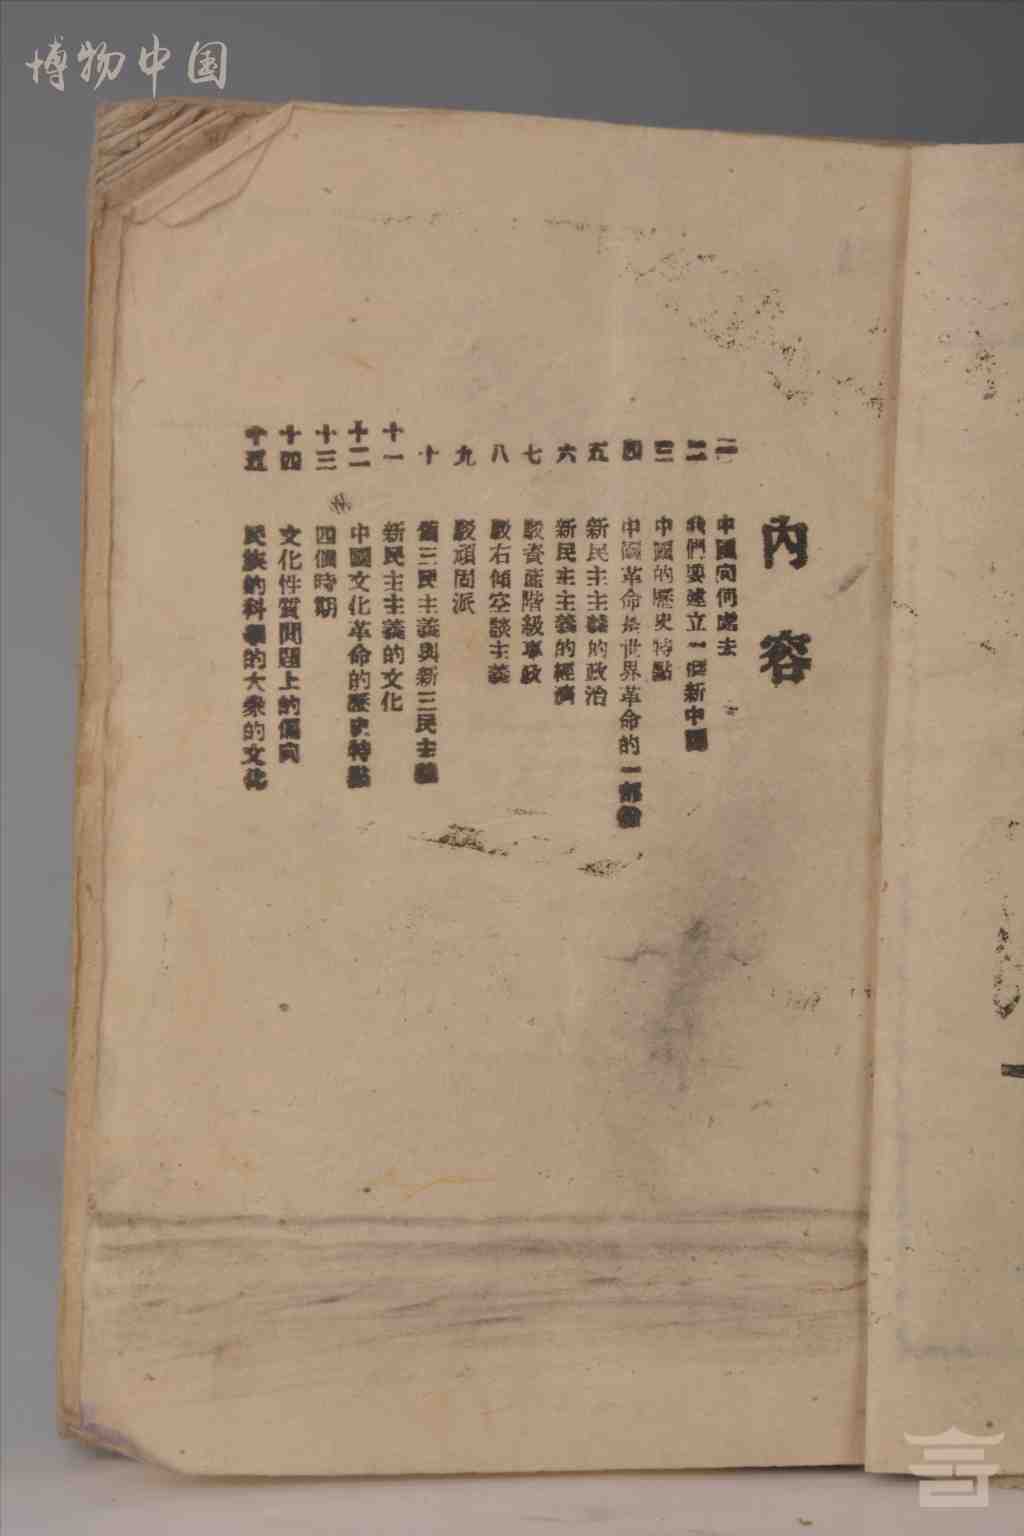 博物中国
內容
一 中國向何處去
二 我們要建立一個新中國
三 中國的歷史特點
四 中國革命是世界革命的一部份
五 新民主主義的政治
六 新民主主義的經濟
七 駁資產階級專政
八 駁右傾空談主義
九 駁頑固派
十 舊三民主義與新三民主義
十一 新民主主義的文化
十二 中國文化革命的歷史特點
十三 四個時期
十四 文化性質問題上的偏向
十五 民族的科學的大衆的文化